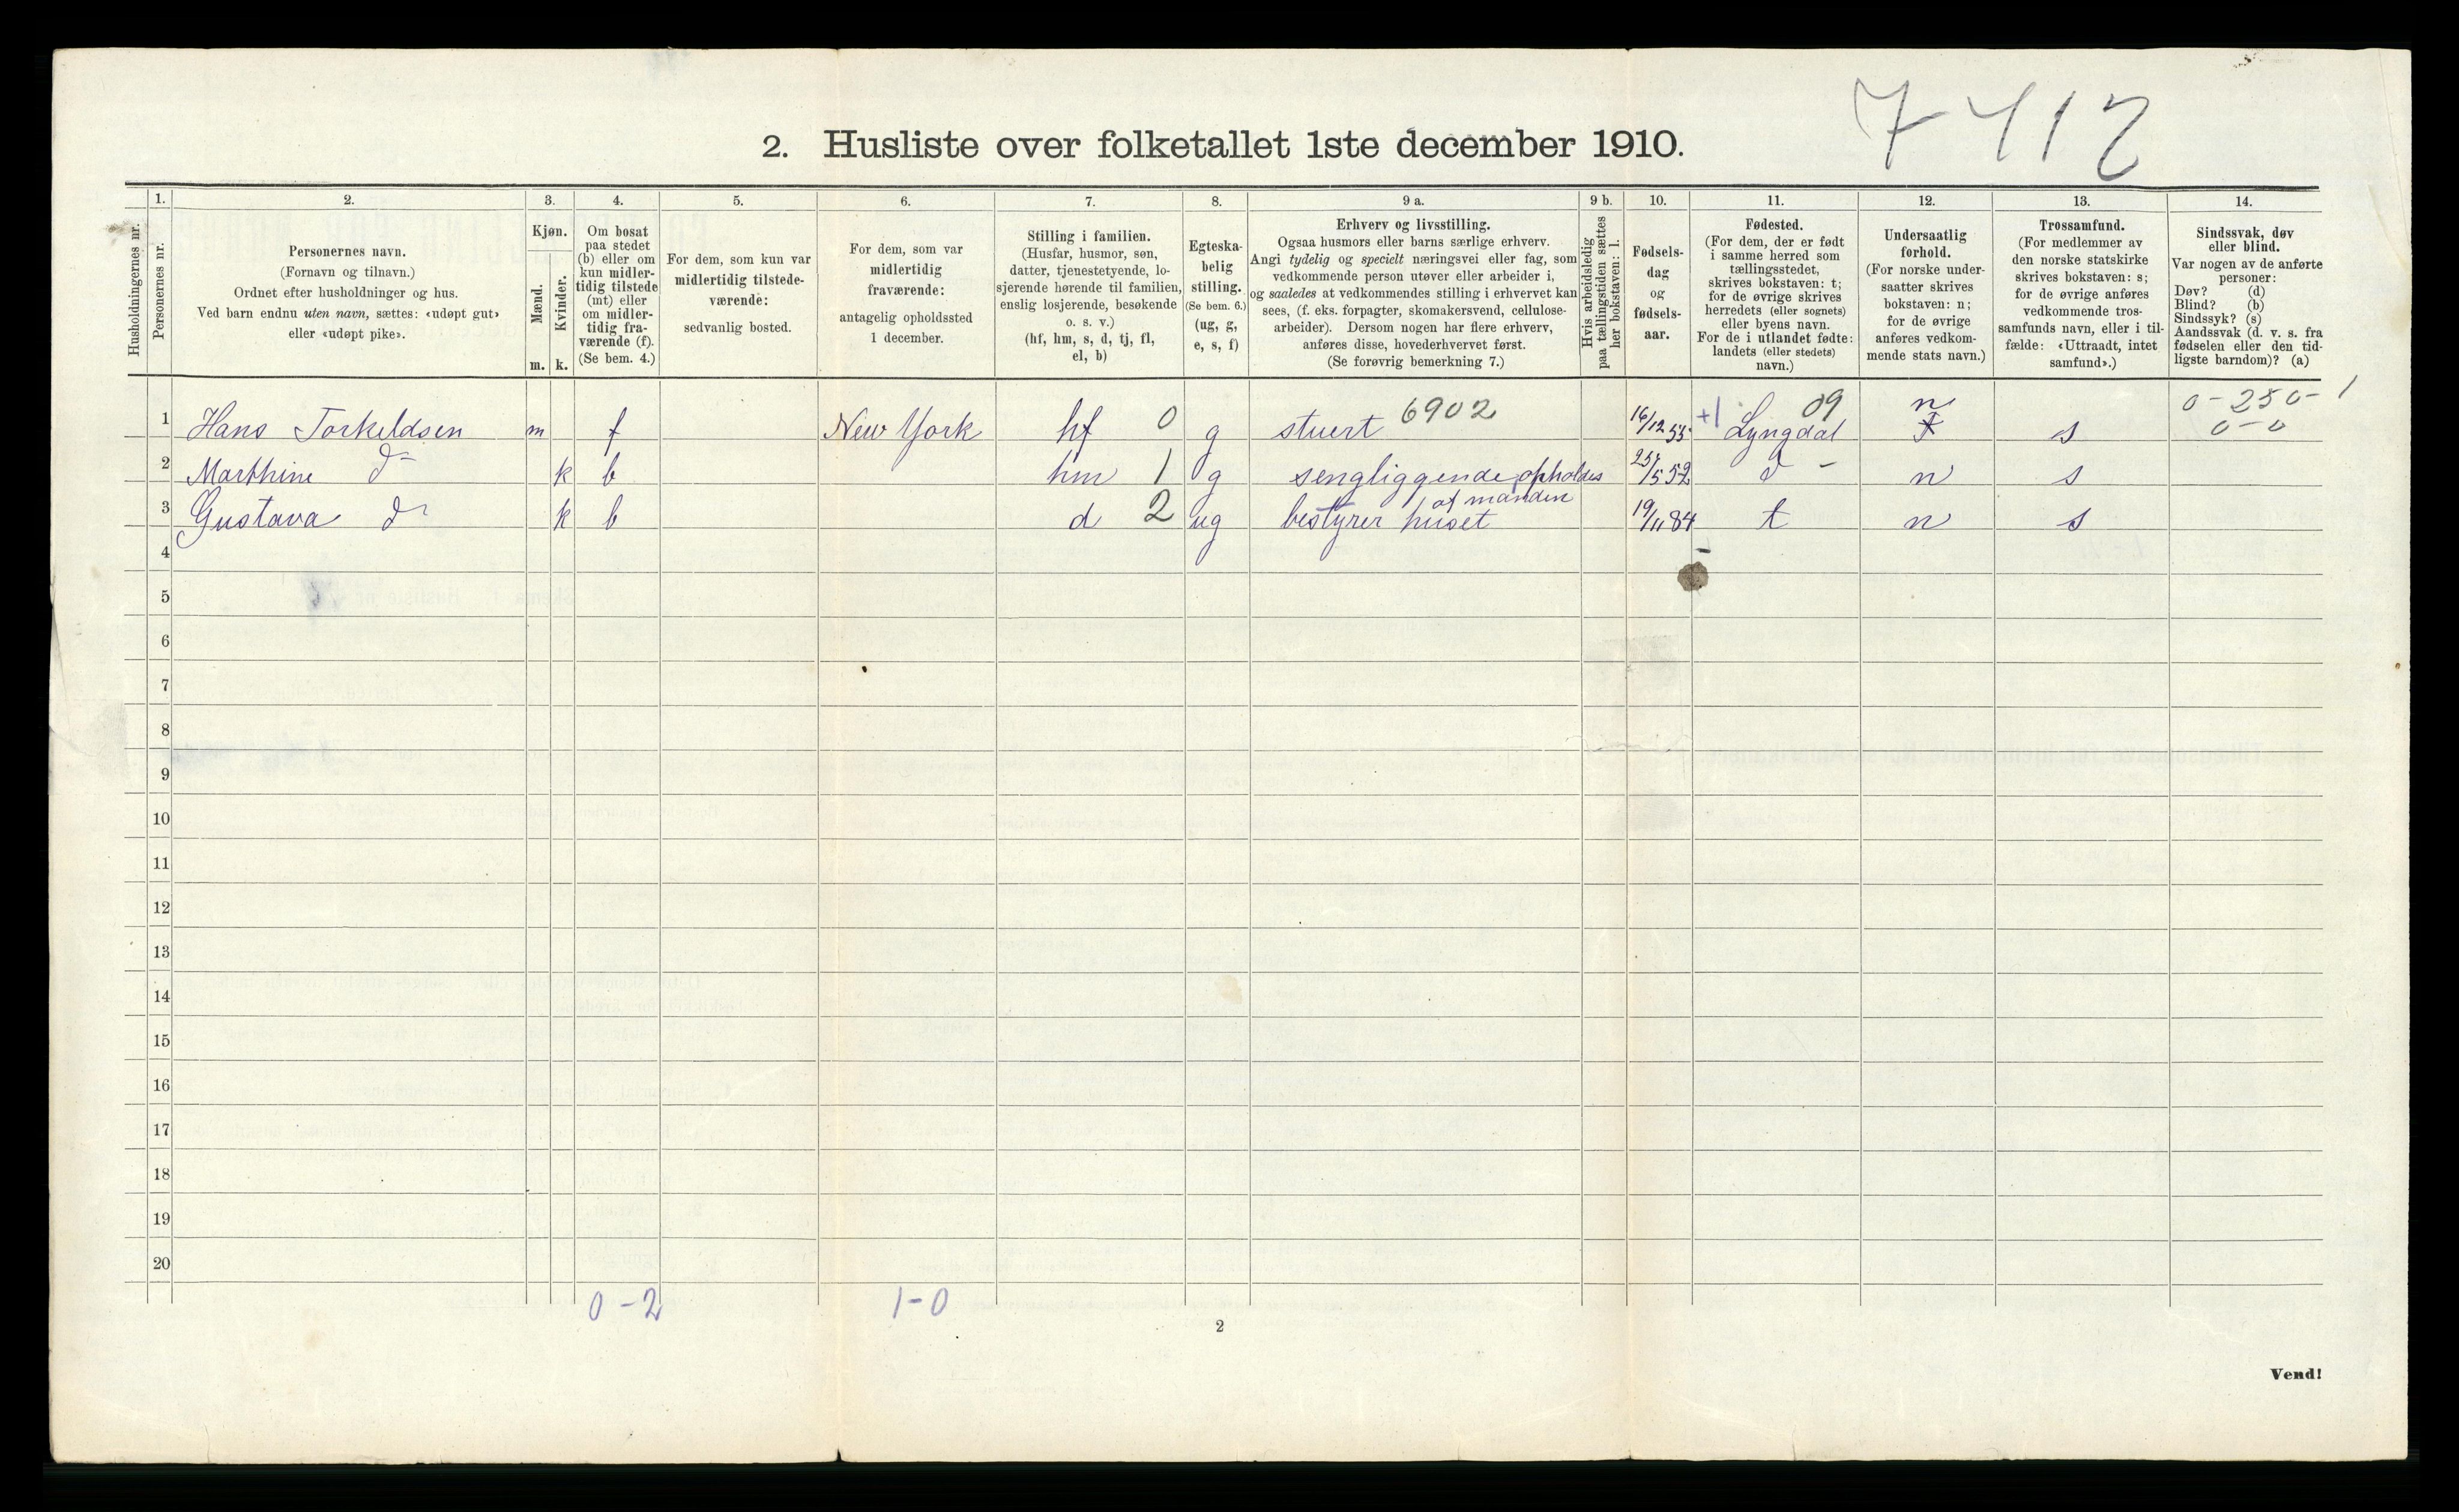 7412
2. Husliste over folketallet 1ste december 1910.
1. 2. 3. 4. 5. 6. 7. 8. 9 a. 9 b. 10. 11. 12. 13. 14.
Husholdningernes nr.
Personernes nr.
Personernes navn.
(Fornavn og tilnavn.)
Ordnet efter husholdninger og hus.
Ved barn endnu uten navn, sættes: «udøpt gut»
eller «udøpt pike».
Kjøn.
Mænd.
Kvinder.
m. k.
Om bosat
paa stedet
(b) eller om
kun midler-
tidig tilstede
(mt) eller
om midler-
tidig fra-
værende (f).
(Se bem. 4.)
For dem, som kun var
midlertidig tilstede-
værende:
sedvanlig bosted.
For dem, som var
midlertidig
fraværende:
antagelig opholdssted
1 december.
Stilling i familien.
(Husfar, husmor, søn,
datter, tjenestetyende, lo-
sjerende hørende til familien,
enslig losjerende, besøkende
o. s. v.)
(hf, hm, s, d, tj, fl,
el, b)
Egteska-
belig
stilling.
(Se bem. 6.)
(ug, g,
e, s, f)
Erhverv og livsstilling.
Ogsaa husmors eller barns særlige erhverv.
Angi tydelig og specielt næringsvei eller fag, som
vedkommende person utøver eller arbeider i,
og saaledes at vedkommendes stilling i erhvervet kan
sees, (f. eks. forpagter, skomakersvend, cellulose-
arbeider). Dersom nogen har flere erhverv,
anføres disse, hovederhvervet først.
(Se forøvrig bemerkning 7.)
Hvis arbeidsledig
paa tællingstiden sættes
her bokstaven: l.
Fødsels-
dag
og
fødsels-
aar.
Fødested.
(For dem, der er født
i samme herred som
tællingsstedet,
skrives bokstaven: t;
for de øvrige skrives
herredets (eller sognets)
eller byens navn.
For de i utlandet fødte:
landets (eller stedets)
navn.)
Undersaatlig
forhold.
(For norske under-
saatter skrives
bokstaven: n;
for de øvrige
anføres vedkom-
mende stats navn.)
Trossamfund.
(For medlemmer av
den norske statskirke
skrives bokstaven: s;
for de øvrige anføres
vedkommende tros-
samfunds navn, eller i til-
fælde: «Uttraadt, intet
samfund».)
Sindssvak, døv
eller blind.
Var nogen av de anførte
personer:
Døv? (d)
Blind? (b)
Sindssyk? (s)
Aandssvak (d. v. s. fra
fødselen eller den tid-
ligste barndom)? (a)
1 Hans Torkeldsen m f New York hf 0 g stuert 6902 16/12 55 +1 Lyngdal 09 n s 0-250-1
0-0
2 Marthine do k b hm 1 g sengliggende opholdes 25/5 52 do n s
af manden
3 Gustava do k b d 2 ug bestyrer huset 19/11 84 t n s
4
5
6
7
8
9
10
11
12
13
14
15
16
17
18
19
20
0-2 1-0
2
Vend!